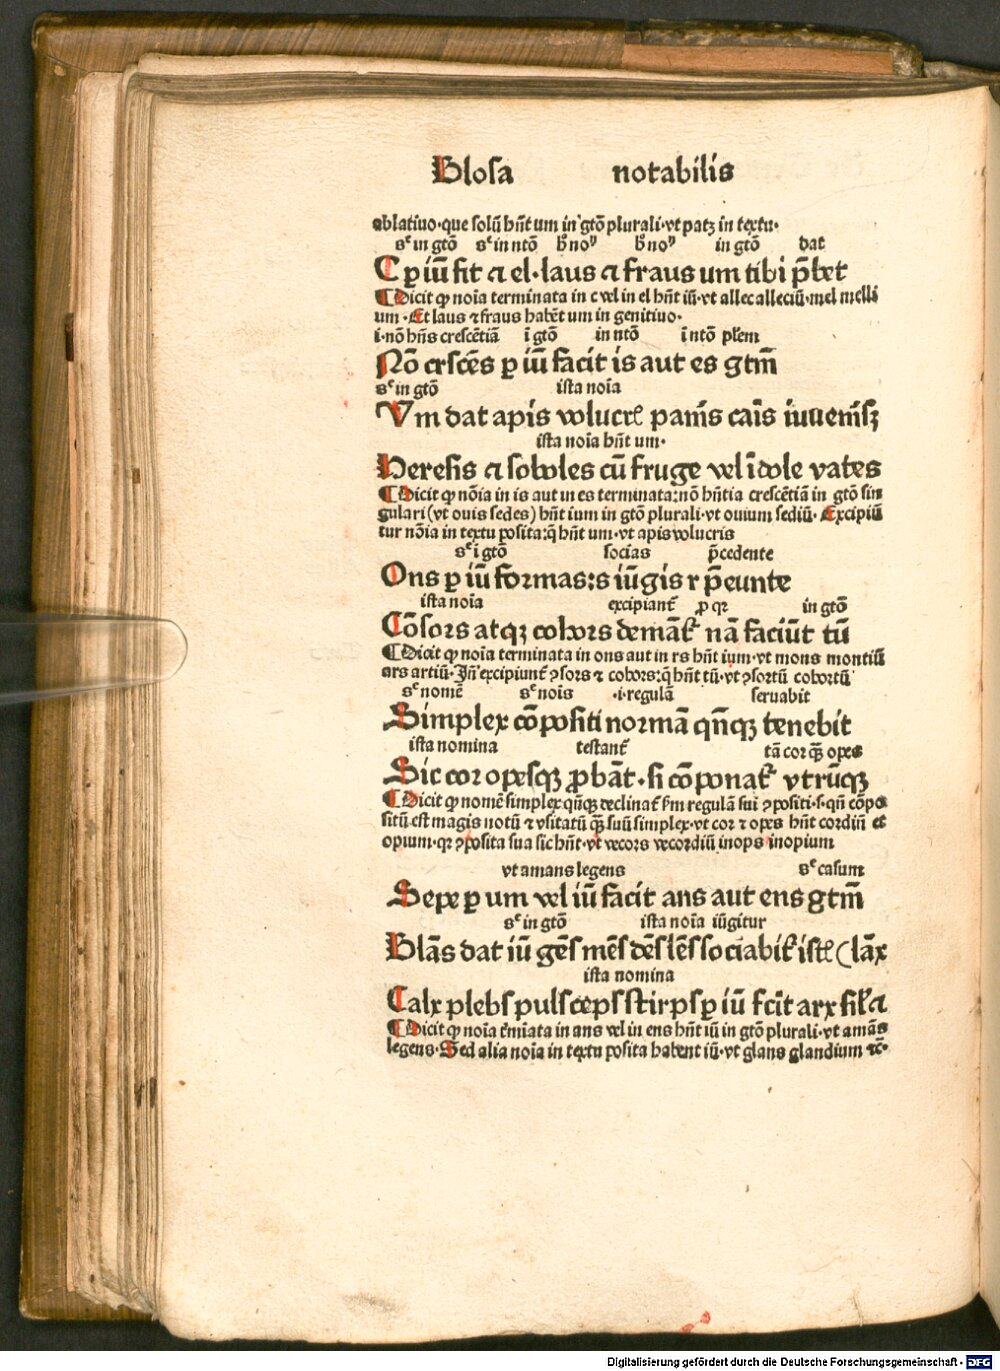 Glosa notabilis
ablatiuo·que solū hn̄t um in gtō plurali·vt patꝫ in textu·
sᶜ in gtō sᶜ in ntō in gtō dat
C ꝑ iū fit ⁊ el·laus ⁊ fraus um tibi p̄bet
¶ Dicit ꝙ noīa terminata in c vel in el hn̄t iū·vt allec alleciū·mel melli
um·Et laus ⁊ fraus habēt um in genitiuo·
i·nō hn̄s crescētiā ī gtō in ntō ī ntō
Nō crscēs ꝑ iū facit is aut es gtm̄
sᶜ in gtō ista noīa
Vm dat apis volucrꝭ panīs caīs iuuenīsꝫ
ista noīa hn̄t um·
Heresis ⁊ soboles cū fruge vel īdole vates
¶ Dicit ꝙ nōia in is aut in es terminata:nō hn̄tia crescētiā in gtō sin
gulari (vt ouis sedes) hn̄t ium in gtō plurali·vt ouium sediū·Excipiū
tur nōia in textu posita:q̄ hn̄t um·vt apis volucris
sᶜ ī gtō socias p̄cedente
Ons ꝑ iū formas:s iūgis r p̄eunte
ista noīa excipiant̄ ꝓ qꝛ in gtō
Cōsors atqꝫ cohors demāt̄ nā faciūt tū
¶ Dicit ꝙ noīa terminata in ons aut in rs hn̄t ium·vt mons montiū
ars artiū·Jn̄ excipiunt̄ ꝯsors ⁊ cohors:q̄ hn̄t tū·vt ꝯsortū cohortū
sᶜ nomē sᶜ nois ·i·regulā seruabit
Simplex cōpositi normā qn̄qꝫ tenebit
ista nomina testant̄ tā cor qꝫ̄ opes
Sic cor opesqꝫ ꝓbāt·si cōponat̄ vtrūqꝫ
¶ Dicit ꝙ nomē simplex qn̄qꝫ declinat̄ sm̄ regulā sui ꝯpositi·s·qn̄ cōpo
sitū est magis notū ⁊ vsitatū qꝫ̄ suū simplex·vt cor ⁊ opes hn̄t cordiū et
opium·qꝛ ꝯposita sua sic hn̄t·vt vecors vecordiū inops inopium
vt amans legens sᶜ casum
Sepe ꝑ um vel iū facit ans aut ens gtm̄
sᶜ in gtō ista noīa iūgitur
Glās dat iū gēs mēs dēs lēs sociabit̄ istꝭ (lāx
ista nomina
Calx plebs puls ceps stirps ꝑ iū fcīt arx sil̄ ⁊
¶ Dicit ꝙ noīa t̄mīata in ans vel in ens hn̄t iū in gtō plurali·vt amās
legens·Sed alia noīa in textu posita habent iū·vt glans glandium ⁊c̄·
Digitalisierung gefördert durch die Deutsche Forschungsgemeinschaft - DFG